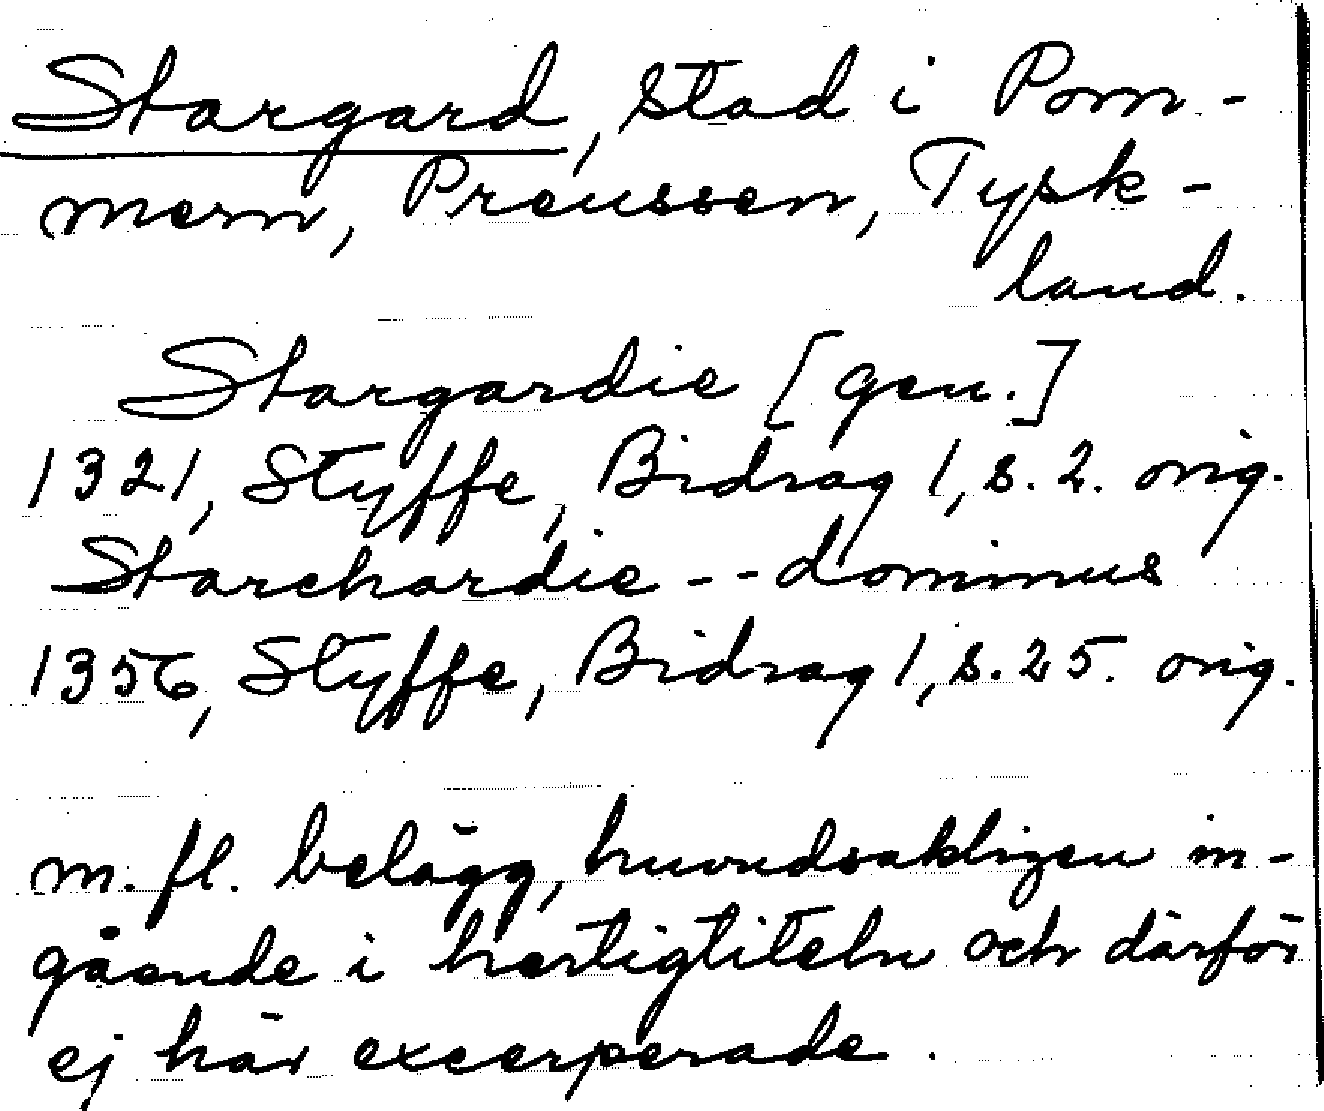 Stargard, stad i Pom-
mern, Preussen, Tysk-
land.
Stargardie [gen.]
1321, Styffe, Bidrag 1, s. 2. orig.
Starchardie -- dominus
1356, Styffe, Bidrag 1, s. 25. orig.
m. fl. belägg, huvudsakligen in-
gående i hertigtiteln och därför
ej här excerperade.